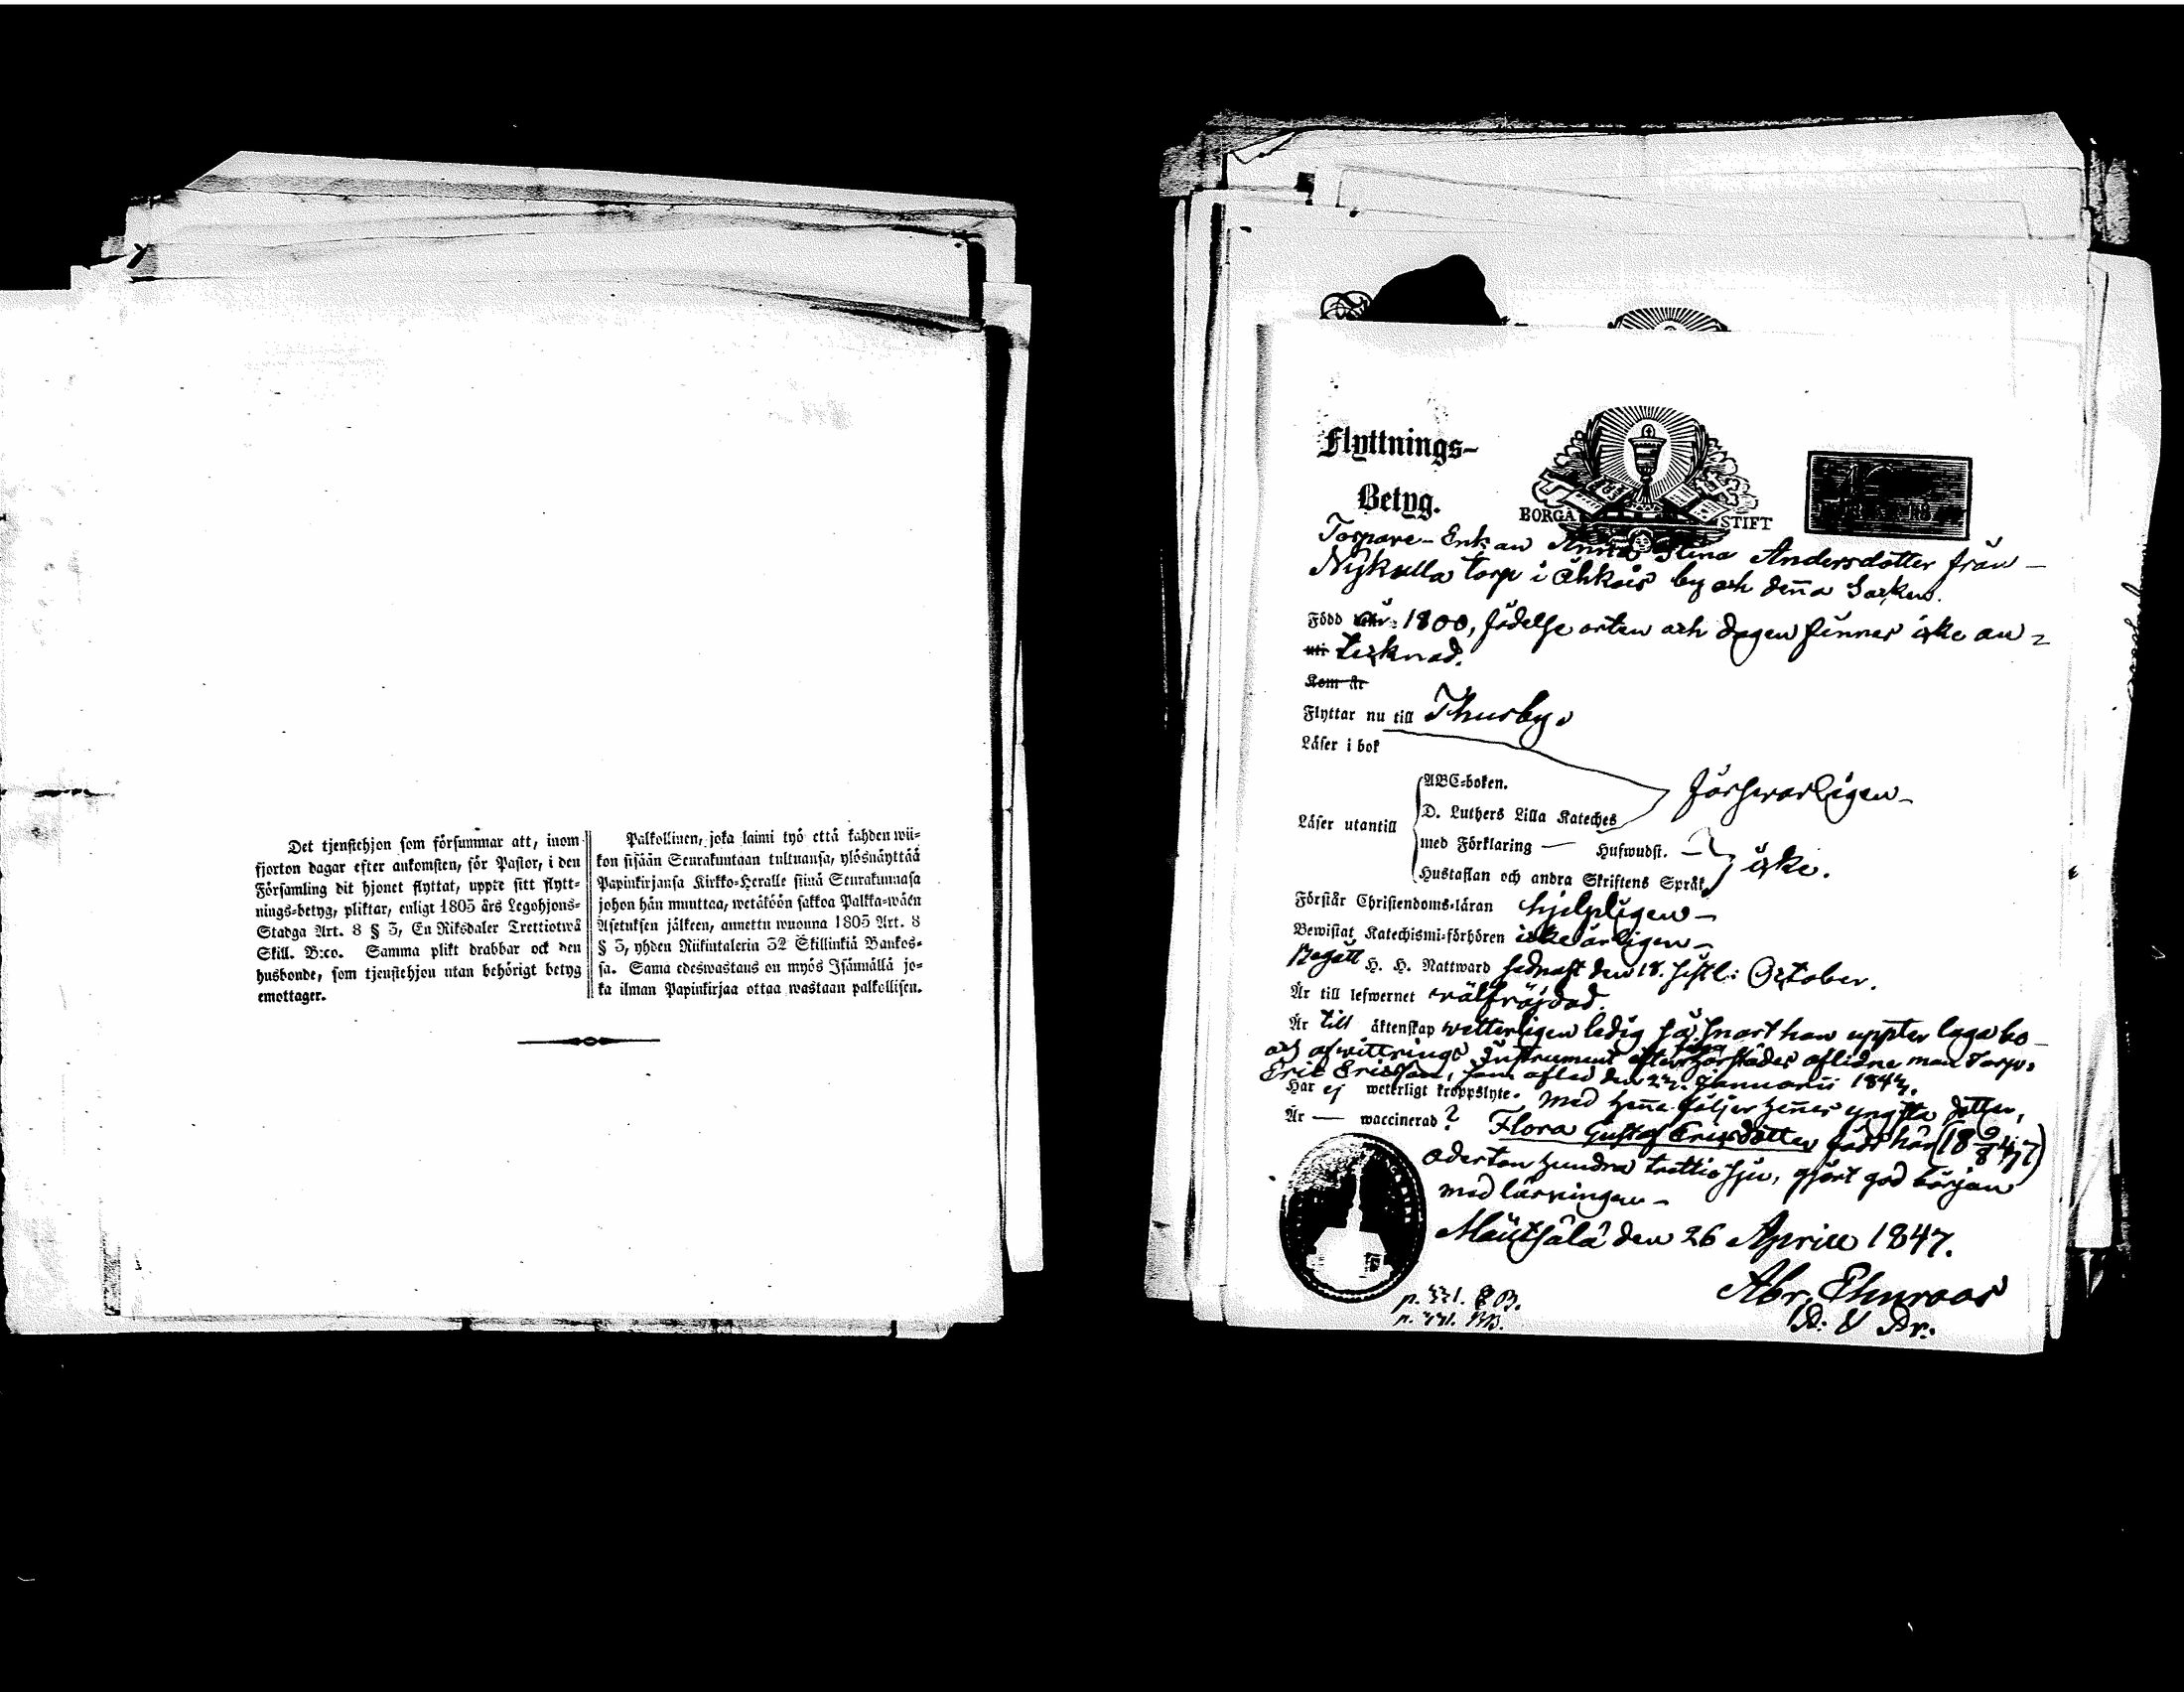 Det tjenstehjon som försummar att, inom
fjorton dagar efter ankomsten, för Pastor, i den
Församling dit hjonet flyttat, uppte sitt flytt-
nings-betyg, pliktar, enligt 1805 års Legohjons-
Stadga Art. 8 § 3, En Riksdaler Trettiotwå
Skill. B:co. Samma plikt drabbar ock den
husbonde, som tjenstehjon utan behörigt betyg
emottager.
Palkollinen, joka laimi työ että kahden wii-
kon sisään Seurakuntaan tultuansa, ylösnäyttää
Papinkirjansa Kirkko-Heralle siinä Seurakunnasa
johon hän muuttaa, wetäköön sakkoa Palkka-wäen
Asetuksen jälkeen, annettu wuonna 1805 Art. 8
§ 3, yhden Riikintalerin 32 Skillinkiä Bankos-
sa. Sama edeswastaus on myös Isännällä jo-
ka ilman Papinkirjaa ottaa wastaan palkollisen.
Flyttnings-
Betyg.
BORGÅ STIFT
Torpare-Enkan Anna Stina Andersdotter från
Nykulla torp i by och denna Socken.
Född år 1800, födelse orten och dagen finnes icke an-
uti tecknad.
Kom år
Flyttar nu till Thusby.
Läser i bok
ABC-boken.
försvarligen
D. Luthers Lilla Kateches
Läser utantill
med Förklaring — Hufwudst. —
icke.
Hustaflan och andra Skriftens Språk
Förstår Christendoms-läran hjelpligen
Bewistat Katechismi-förhören icke årligen
Begått H. H. Nattward sednast den 18. sistl: October.
Är till lefwernet wälfräjdad.
Är till äktenskap wetterligen ledig så snart hon uppter laga bo
och afwittrings Instrument efter aflidne man Torp.
Eric Ericsson, som afled den januarii 1847.
Har ej weterligt kroppslyte. Med henne följer hennes yngsta dotter,
Är — waccinerad? Flora Gustaf Ericsdotter född här
aderton hundra trettio sju, gjort god början
med läsningen
Mäntsälä den 26 Aprill 1847.
Abr. Thuroos